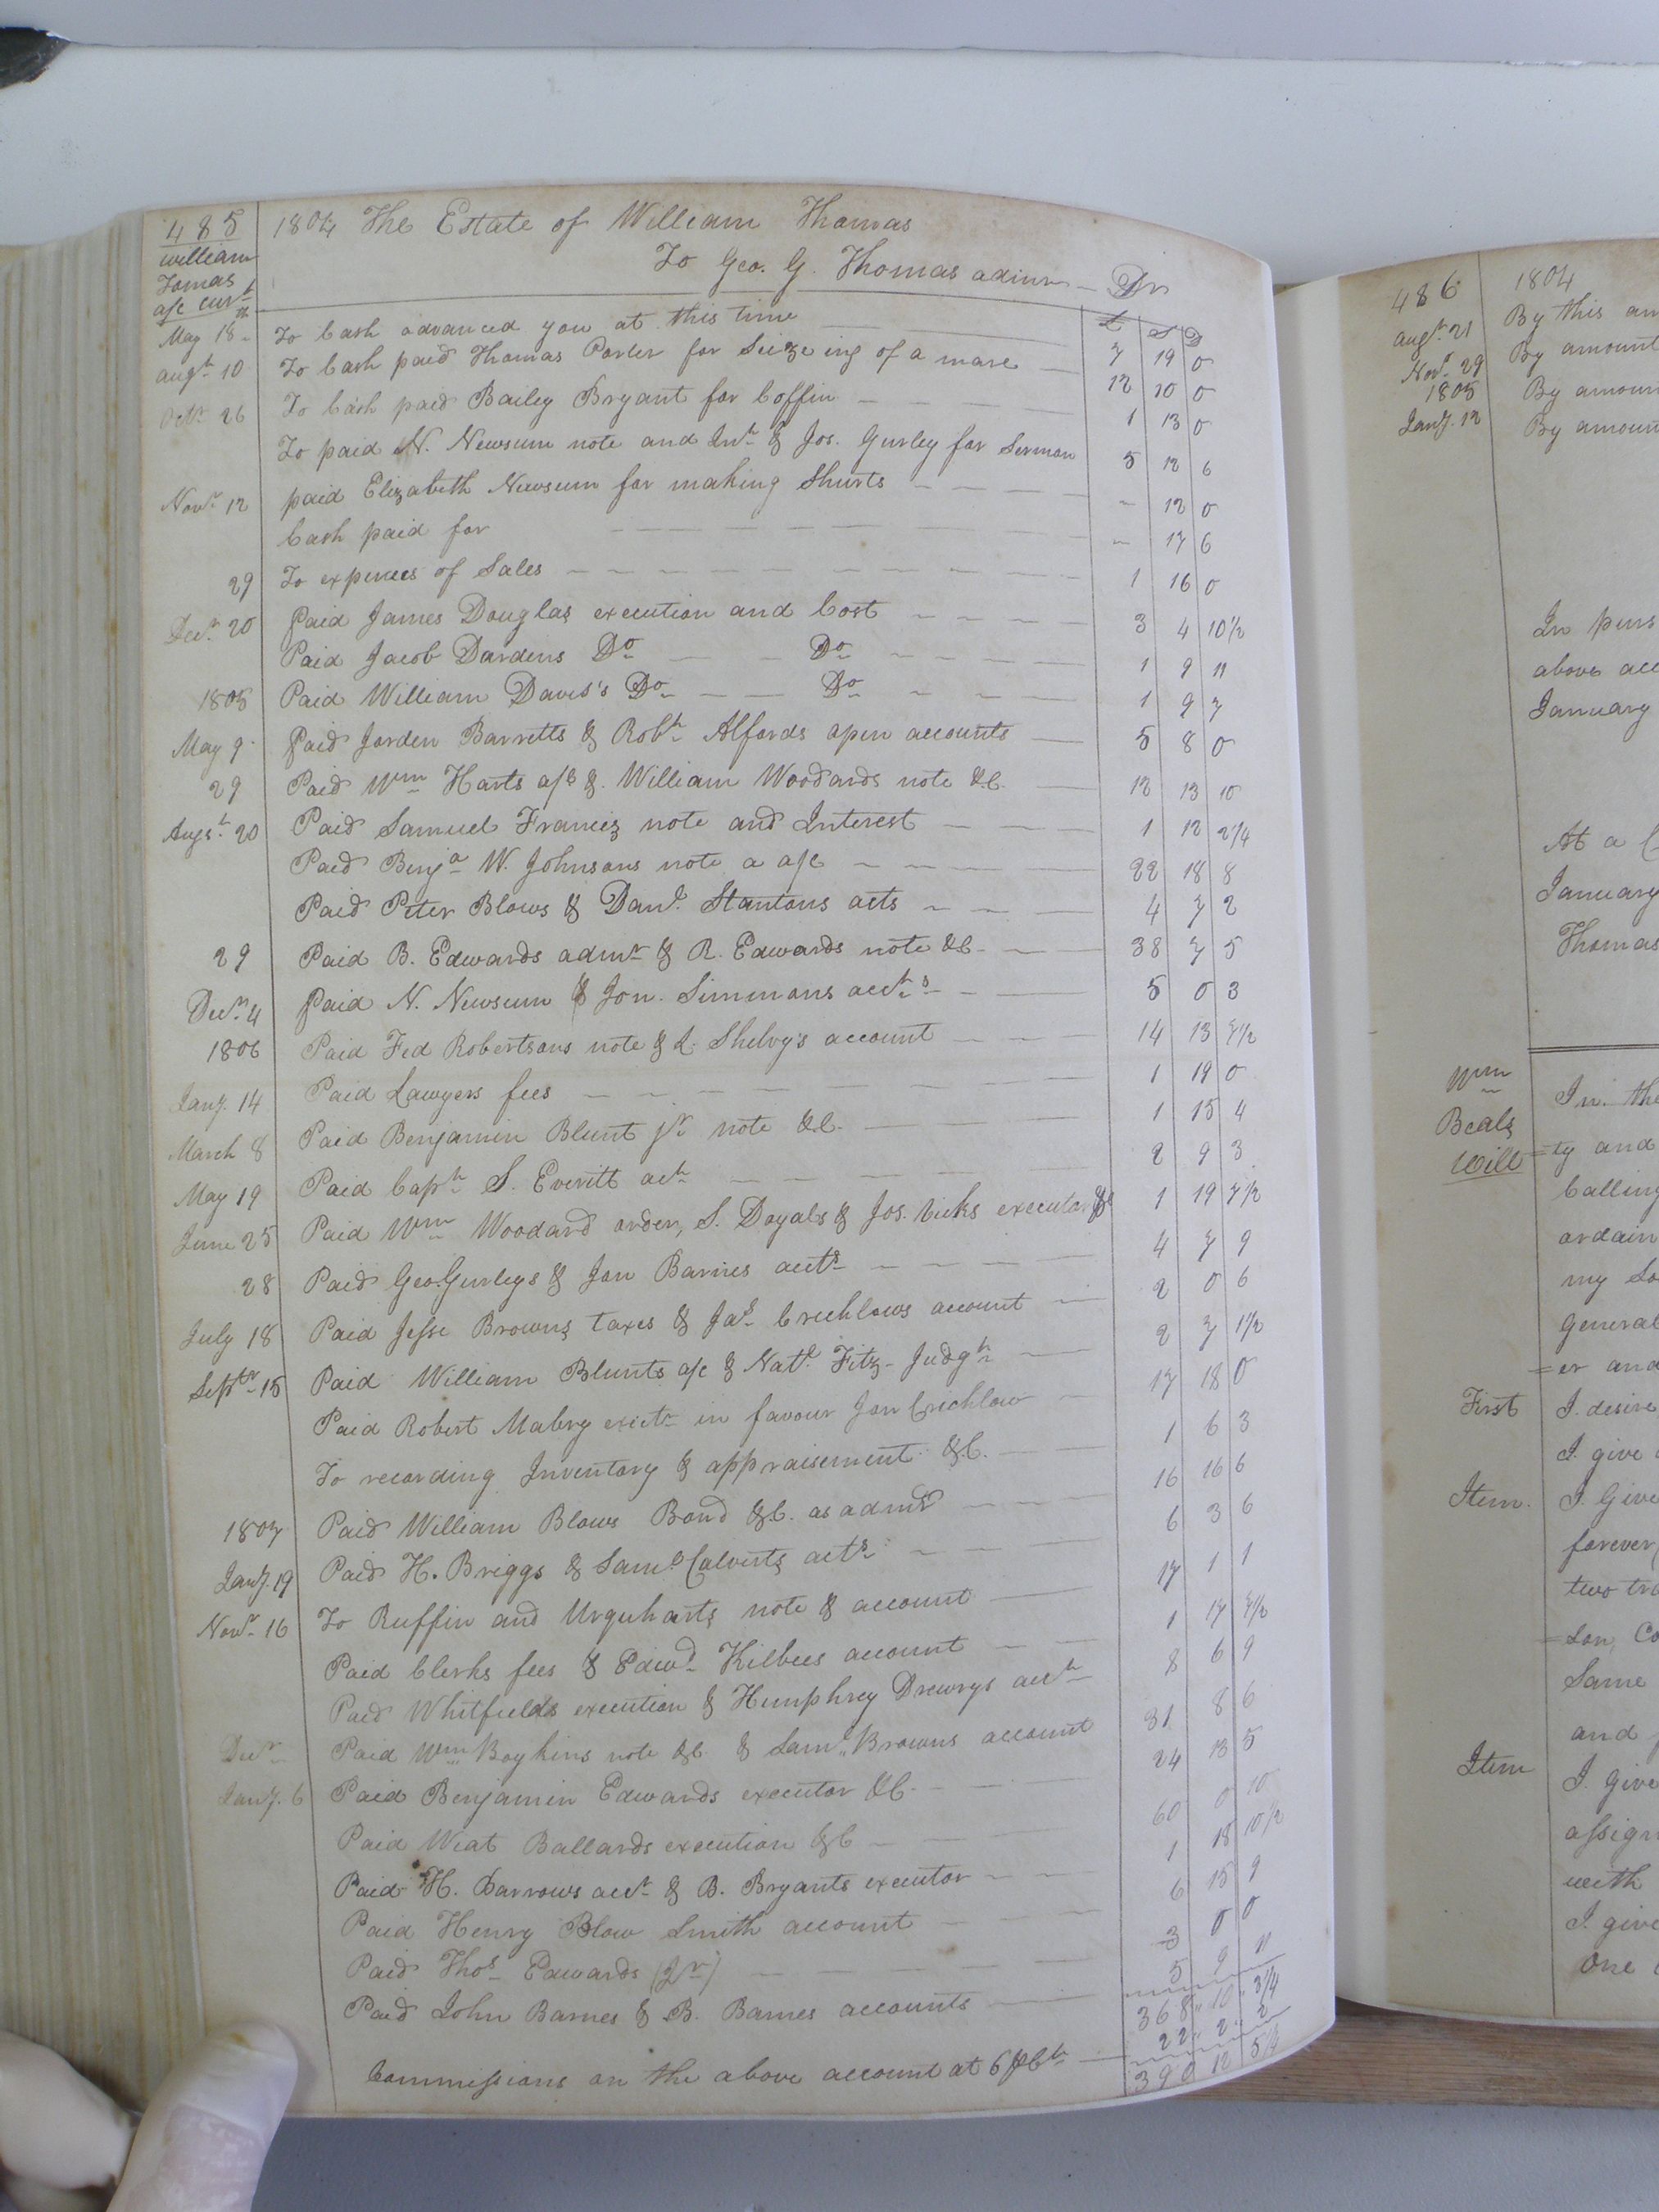 485
william
Tomas
a/c curt
1804 The Estate of William Thomas
To Geo. G. Thomas admr Dr
£ S D
May 18th To Cash advanced you at this time 7 19 0
augt 10 To Cash paid Thomas Porter for Seizeing of a mare 12 10 0
Octr 26 To Cash paid Bailey Bryant for Coffin 1 13 0
To paid N. Newsum note and Int & Jos. Gurley for Sermon 5 12 6
Novr 12 paid Elizabeth Newsum for making Shurts - 12 0
Cash paid for - 17 6
29 To expences of Sales 1 16 0
Decr 20 Paid James Douglas execution and Cost 3 4 10½
Paid Jacob Dardens Do Do 1 9 11
1805 Paid William Davis's Do Do 1 9 7
May 9 Paid Jorden Barretts & Robt Alfords open accounts 5 8 0
29 Paid Wm Harts a/c & William Woodards note &C. 12 13 10
Augst 20 Paid Samuel Francis note and Interest 1 12 2¼
Paid Benja W. Johnsons note a a/c 22 18 8
Paid Peter Blows & Danl. Stantons acts 4 7 2
29 Paid B. Edwards admr & R. Edwards note &C 38 7 5
Decr 4 Paid N. Newsum & Jon. Simmons accts 5 0 3
1806 Paid Fed Robertsons note & L. Shelvy's account 14 13 7½
Jany. 14 Paid Lawyers fees 1 19 0
March 8 Paid Benjamin Blunt jr note &C. 1 15 4
May 19 Paid Capt S. Everitt act 2 9 3
June 25 Paid Wm Woodard order, S. Doyals & Jos. Vicks executor &c 1 19 7½
28 Paid Geo. Gurleys & Jon Barnes acts 4 7 9
July 18 Paid Jesse Browns taxes & Jas Crichlows account 2 0 6
Septr 15 Paid William Blunts a/c & Natl. Fitz- Judgt 2 7 1½
Paid Robert Mabry exict in favour Jon Crichlow 17 18 0
To recording Inventory & appraisement &C. 1 6 3
1807 Paid William Blows Bond &C. as admr 16 16 6
Jany. 19 Paid H. Briggs & Saml Calverts acts 6 3 6
Novr 16 To Ruffin and Urquharts note & account 17 1 1
Paid Clerks fees & Edwd Kilbees account 1 17 7½
Paid Whitfields execution & Humphrey Drewrys act 8 6 9
Decr Paid Wm Boykins note &C. & Saml Browns account 31 8 6
Jany. 6 Paid Benjamin Edwards executor &C. 24 13 5
Paid Wiat Ballards execution &C 60 0 10
Paid H. Barrows act & B. Bryants executor 1 18 10½
Paid Henry Blow Smith account 6 15 9
Paid Thos Edwards (Jr) 3 0 0
Paid John Barnes & B. Barnes accounts 5 9 11
368 " 10 " 3¼
Commissions on the above account at 6 PCt 22 " 2 " 2
390 12 5¼
486
1804
augst 21 By this am
Novr 29 By amount
1805 By amoun
Jany. 12 By amoun
In purs
above acc
January
At a C
January
Thomas
Wm
Beals
Will
In the
=ty and
Calling
ordain
my So
General
=er and
First I. desire
I. give
Item. I. Give
forever
two tra
=son, Co
Same
and
Item I. give
assign
with
I. give
one